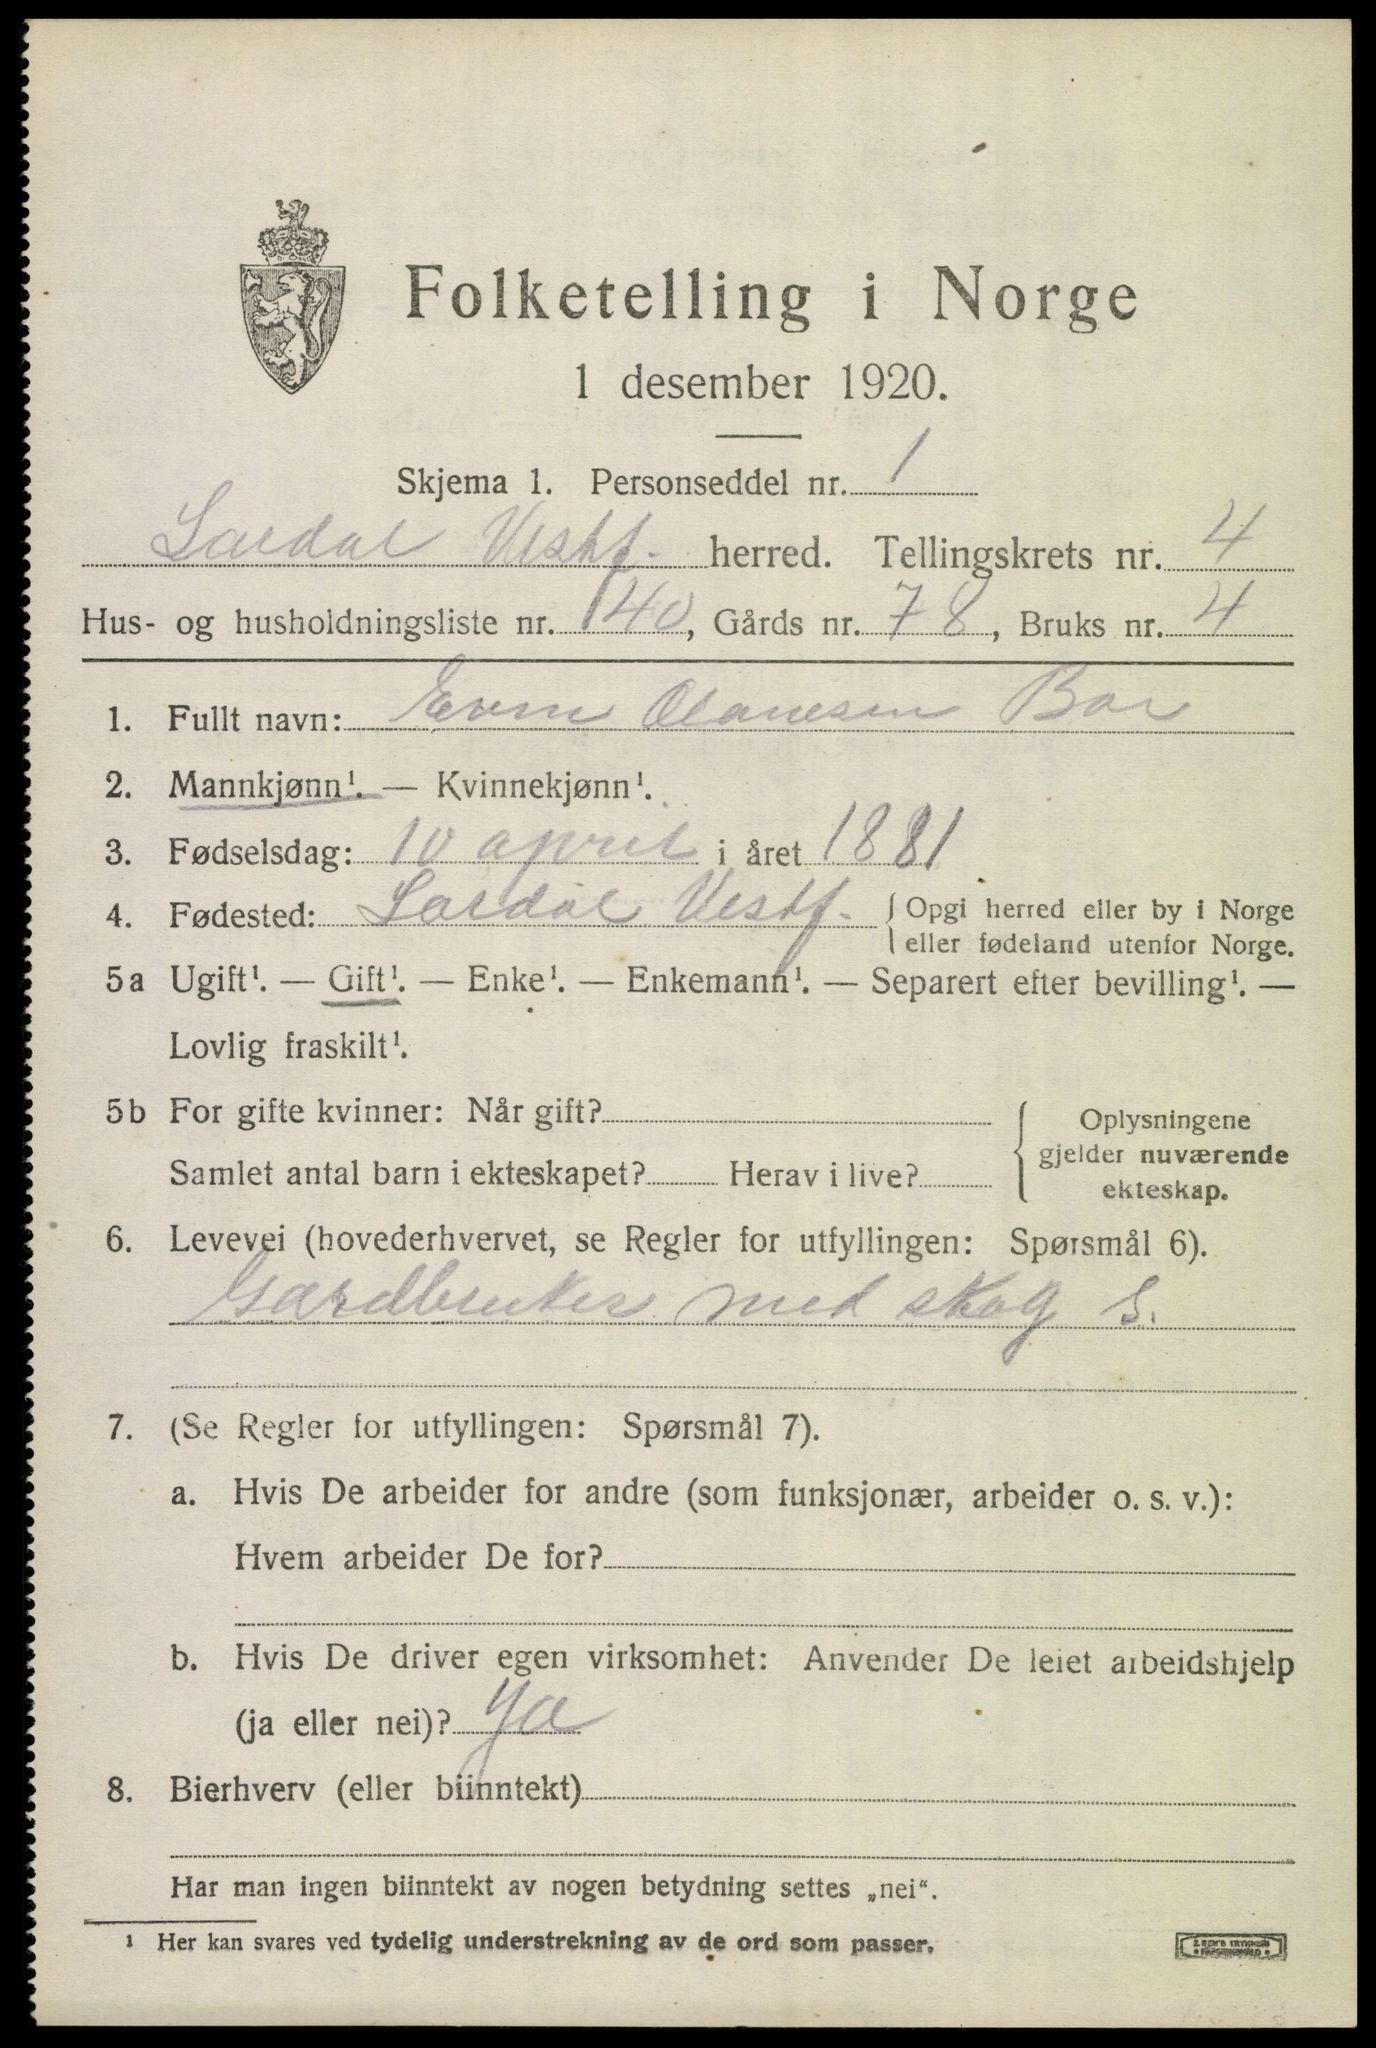 Folketelling i Norge
1 desember 1920.
Skjema 1. Personseddel nr. 1
Lardal Vestf. herred. Tellingskrets nr. 4
Hus- og husholdningsliste nr. 140, Gårds nr. 78, Bruks nr. 4
1. Fullt navn: Even
2. Mannkjønn¹. — Kvinnekjønn¹.
3. Fødselsdag: 10 april i året 1881
4. Fødested: Lardal Vestf. { Opgi herred eller by i Norge
eller fødeland utenfor Norge.
5a Ugift¹. — Gift¹. — Enke¹. — Enkemann¹. — Separert efter bevilling¹. —
Lovlig fraskilt¹.
5b For gifte kvinner: Når gift?
Samlet antal barn i ekteskapet? Herav i live?
Oplysningene
gjelder nuværende
ekteskap.
6. Levevei (hovederhvervet, se Regler for utfyllingen: Spørsmål 6).
Gardbruker med skog S.
7. (Se Regler for utfyllingen: Spørsmål 7).
a. Hvis De arbeider for andre (som funksjonær, arbeider o. s. v.):
Hvem arbeider De for?
b. Hvis De driver egen virksomhet: Anvender De leiet arbeidshjelp
(ja eller nei)? Ja
8. Bierhverv (eller biinntekt)
Har man ingen biinntekt av nogen betydning settes „nei“.
¹ Her kan svares ved tydelig understrekning av de ord som passer.